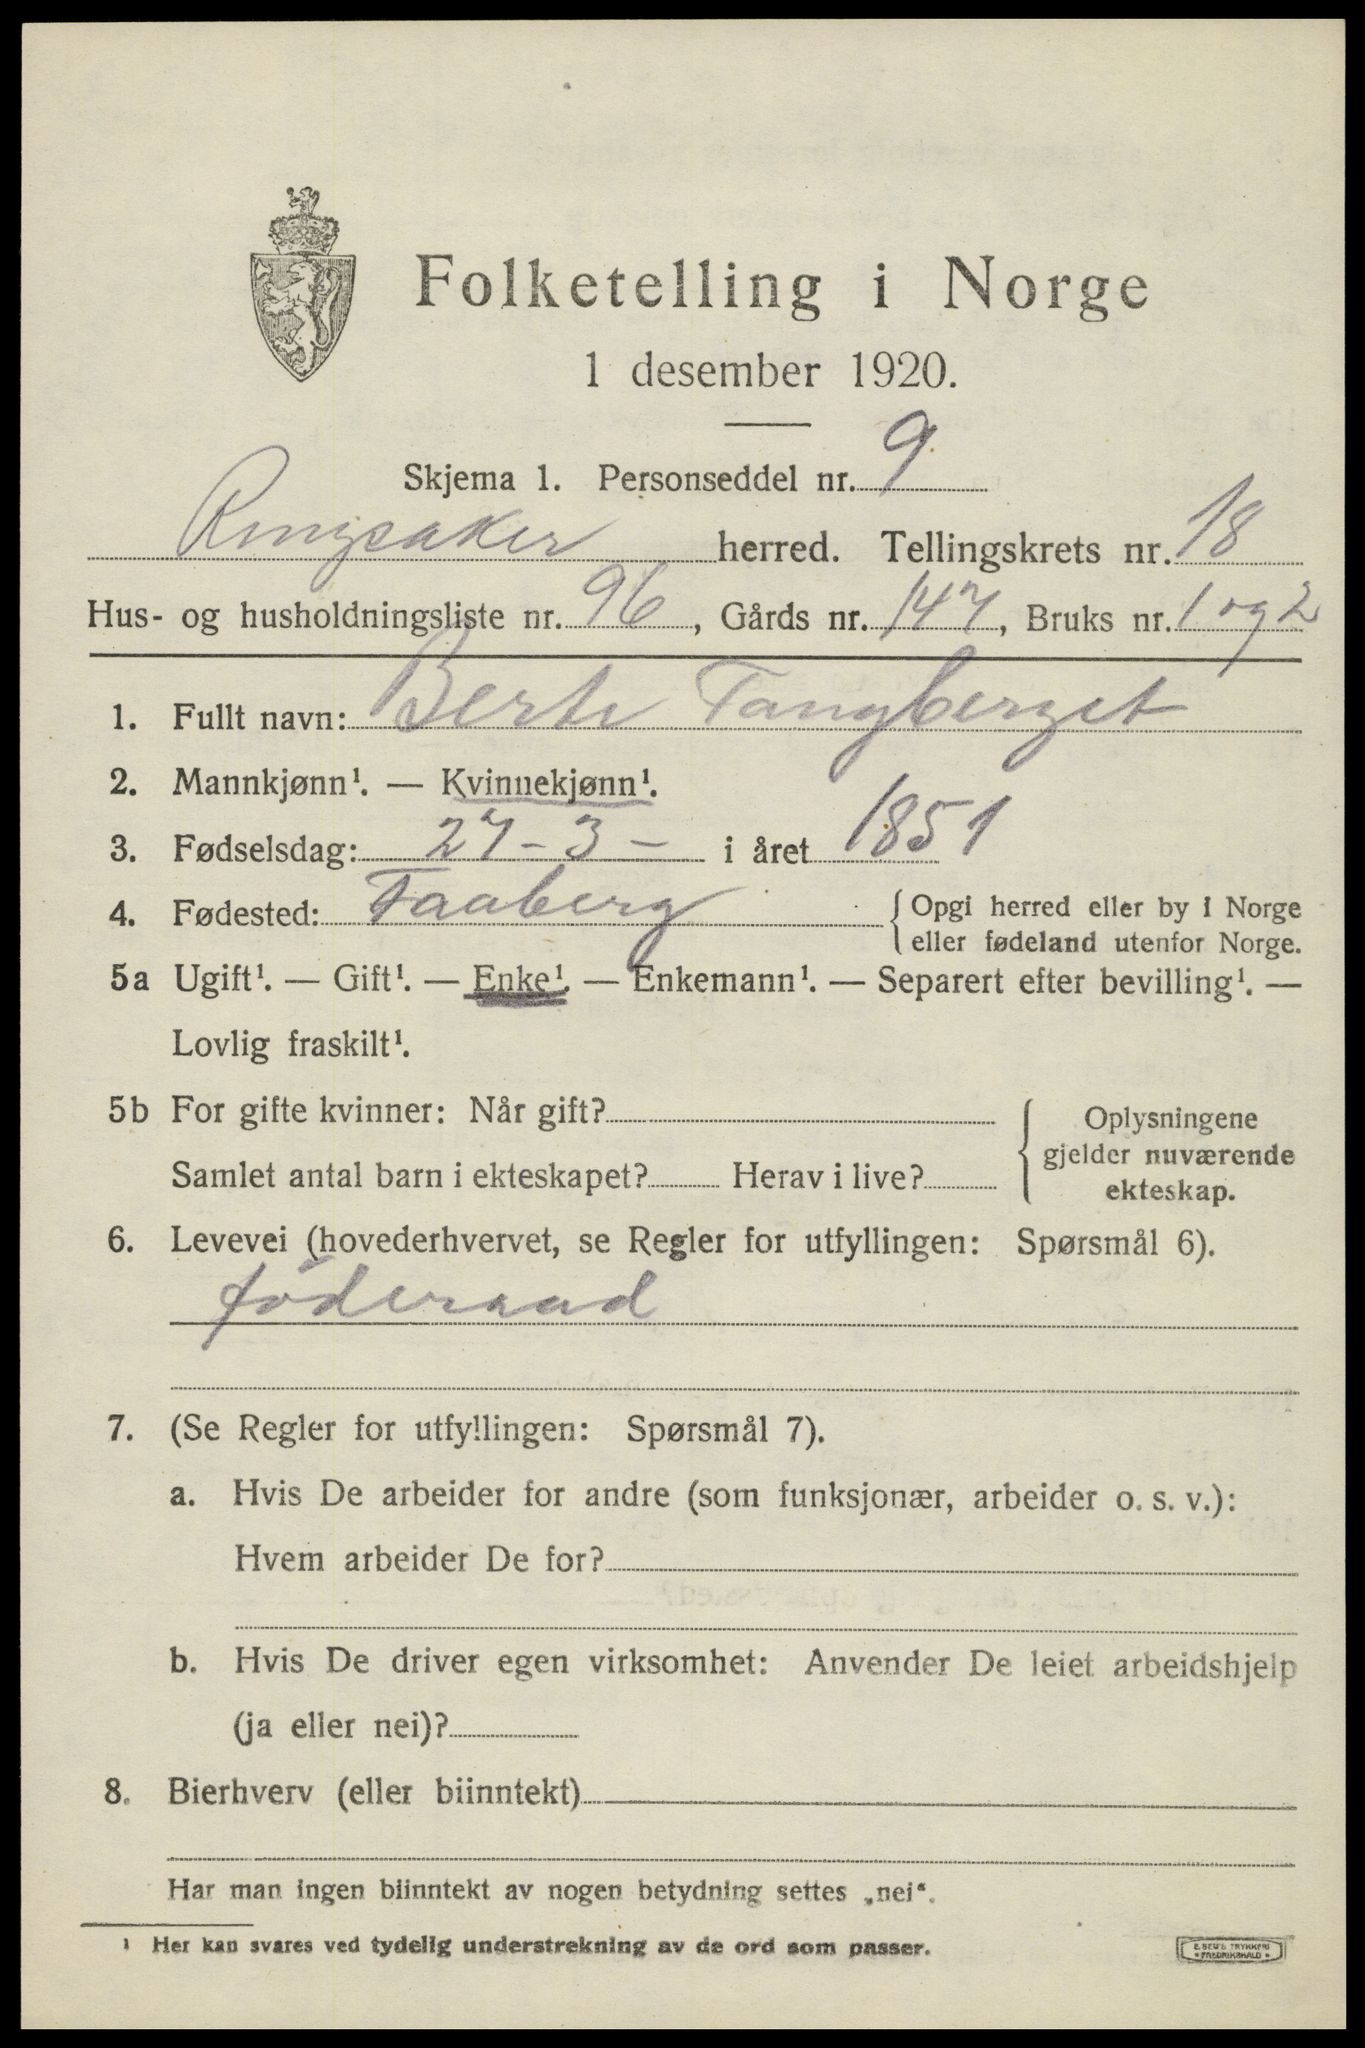 Folketelling i Norge
1 desember 1920.
Skjema 1. Personseddel nr. 9
Ringsaker herred. Tellingskrets nr. 18
Hus- og husholdningsliste nr. 96, Gårds nr. 147, Bruks nr. 1 og 2
1. Fullt navn: Berte Tangberget
2. Mannkjønn¹. — Kvinnekjønn¹.
3. Fødselsdag: 27 - 3 - i året 1851
4. Fødested: Faaberg { Opgi herred eller by i Norge
eller fødeland utenfor Norge.
5a Ugift¹. — Gift¹. — Enke¹. — Enkemann¹. — Separert efter bevilling¹. —
Lovlig fraskilt¹.
5b For gifte kvinner: Når gift? { Oplysningene
gjelder nuværende
Samlet antal barn i ekteskapet? Herav i live?
ekteskap.
6. Levevei (hovederhvervet, se Regler for utfyllingen: Spørsmål 6).
föderaad
7. (Se Regler for utfyllingen: Spørsmål 7).
a. Hvis De arbeider for andre (som funksjonær, arbeider o. s. v.):
Hvem arbeider De for?
b. Hvis De driver egen virksomhet: Anvender De leiet arbeidshjelp
(ja eller nei)?
8. Bierhverv (eller biinntekt)
Har man ingen biinntekt av nogen betydning settes „nei“.
¹ Her kan svares ved tydelig understrekning av de ord som passer.
E. SEM'S TRYKKERI
* FREDRIKSHALD *